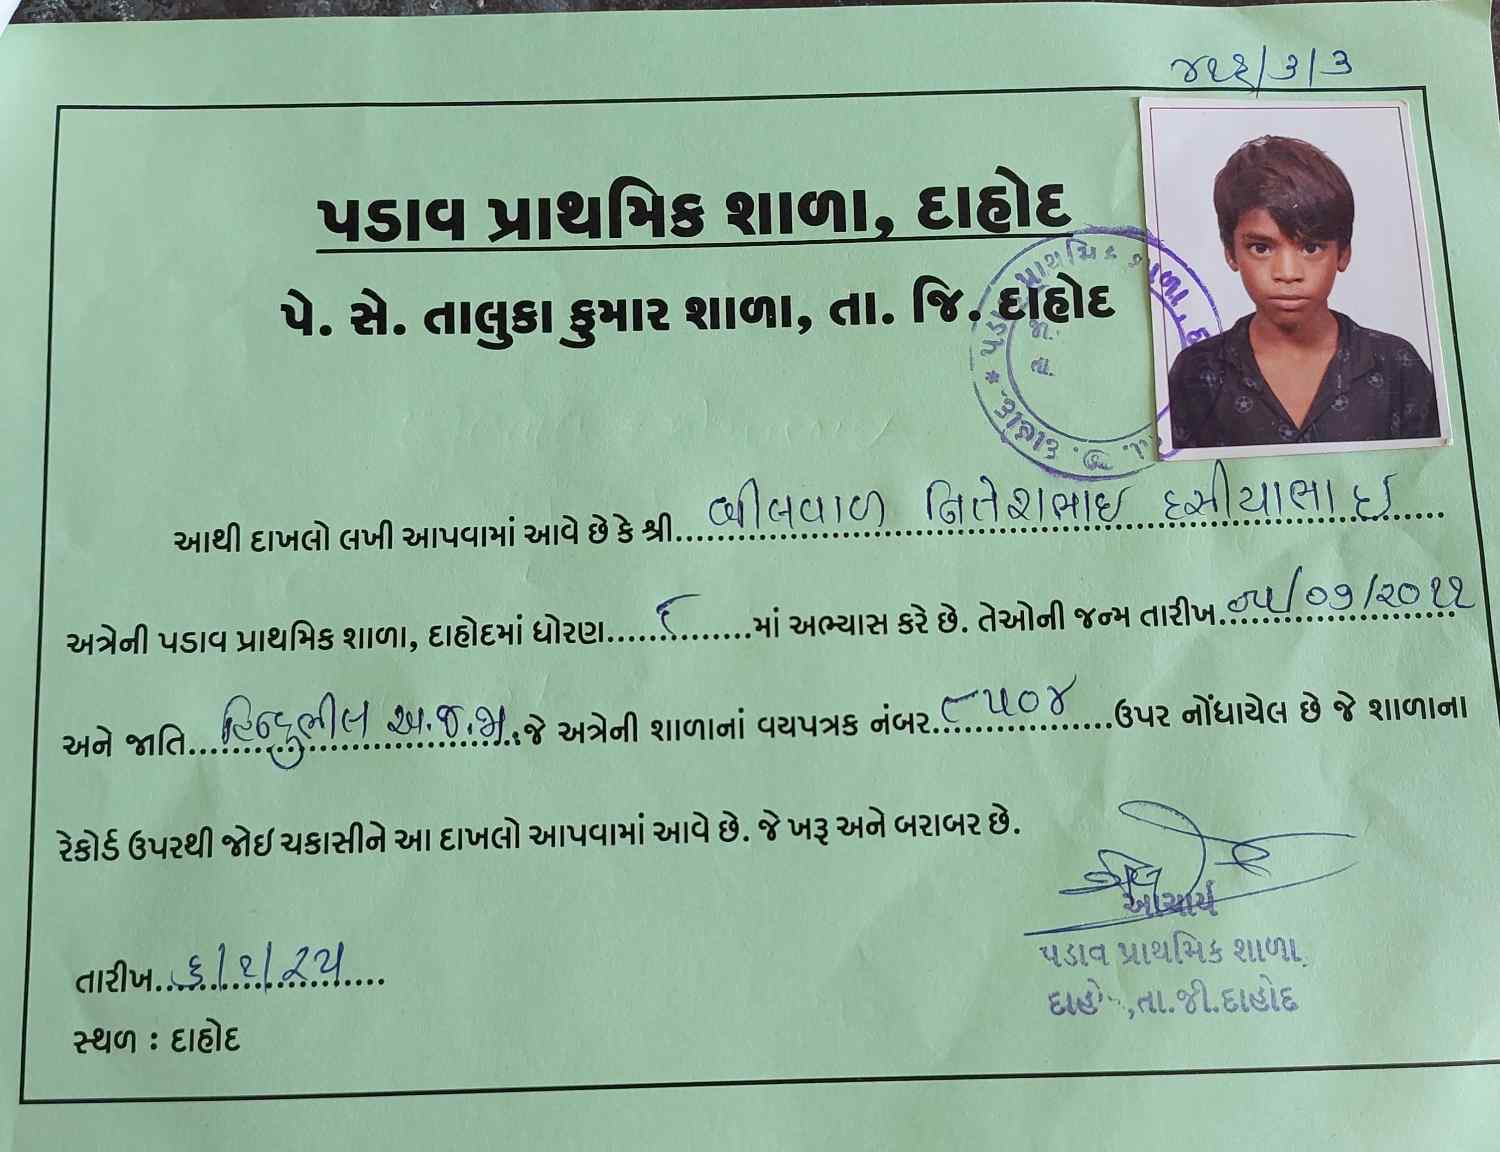 ૪૧૬/૩/૩
પડાવ પ્રાથમિક શાળા, દાહોદ
પે. સે. તાલુકા કુમાર શાળા, તા. જિ. દાહોદ
આથી દાખલો લખી આપવામાં આવે છે કે શ્રી બીલવાળ નિતેશભાઇ દસીયાભાઈ
અત્રેની પડાવ પ્રાથમિક શાળા, દાહોદમાં ધોરણ ૮ માં અભ્યાસ કરે છે. તેઓની જન્મ તારીખ /૦૭/૨૦૧૧
અને જાતિ હિન્દુભીલ અ.જ.જા. જે અત્રેની શાળાનાં વયપત્રક નંબર ૮૫૦૪ ઉપર નોંધાયેલ છે જે શાળાના
રેકોર્ડ ઉપરથી જોઇ ચકાસીને આ દાખલો આપવામાં આવે છે. જે ખરૂ અને બરાબર છે.
આચાર્ય
પડાવ પ્રાથમિક શાળા,
તા.જી.દાહોદ
તારીખ ૬/૧/૨૫
સ્થળ : દાહોદ